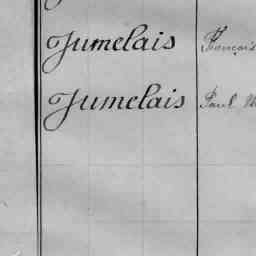 Jumelais Français
Jumelais Paul